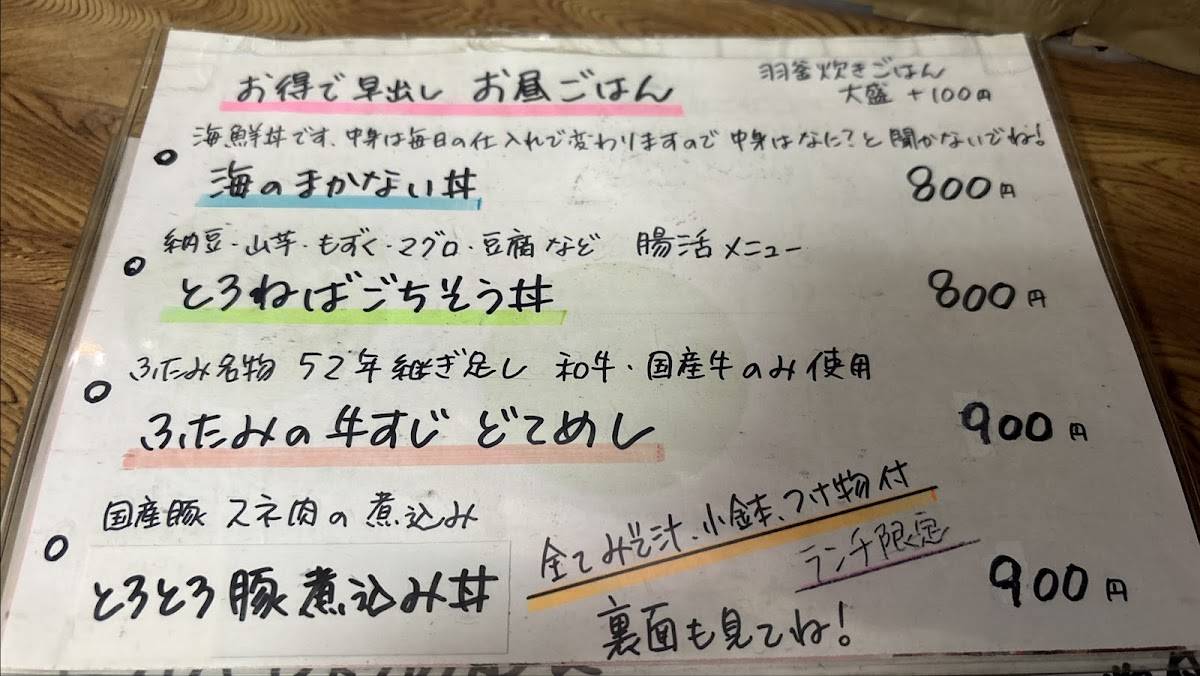 お得で早出し お昼ごはん
羽釜炊きごはん
大盛 +100円
海鮮丼です、中身は毎日の仕入れで変わりますので 中身はなに?と聞かないでね!
海のまかない丼 800円
納豆・山芋・もずく・マグロ・豆腐など 腸活メニュー
とろねばごちそう丼 800円
ふたみ名物 52年継ぎ足し 和牛・国産牛のみ使用
ふたみの牛すじ どてめし 900円
国産豚 スネ肉の煮込み
とろとろ豚煮込み丼 900円
全てみそ汁、小鉢、つけ物付
ランチ限定
裏面も見てね!